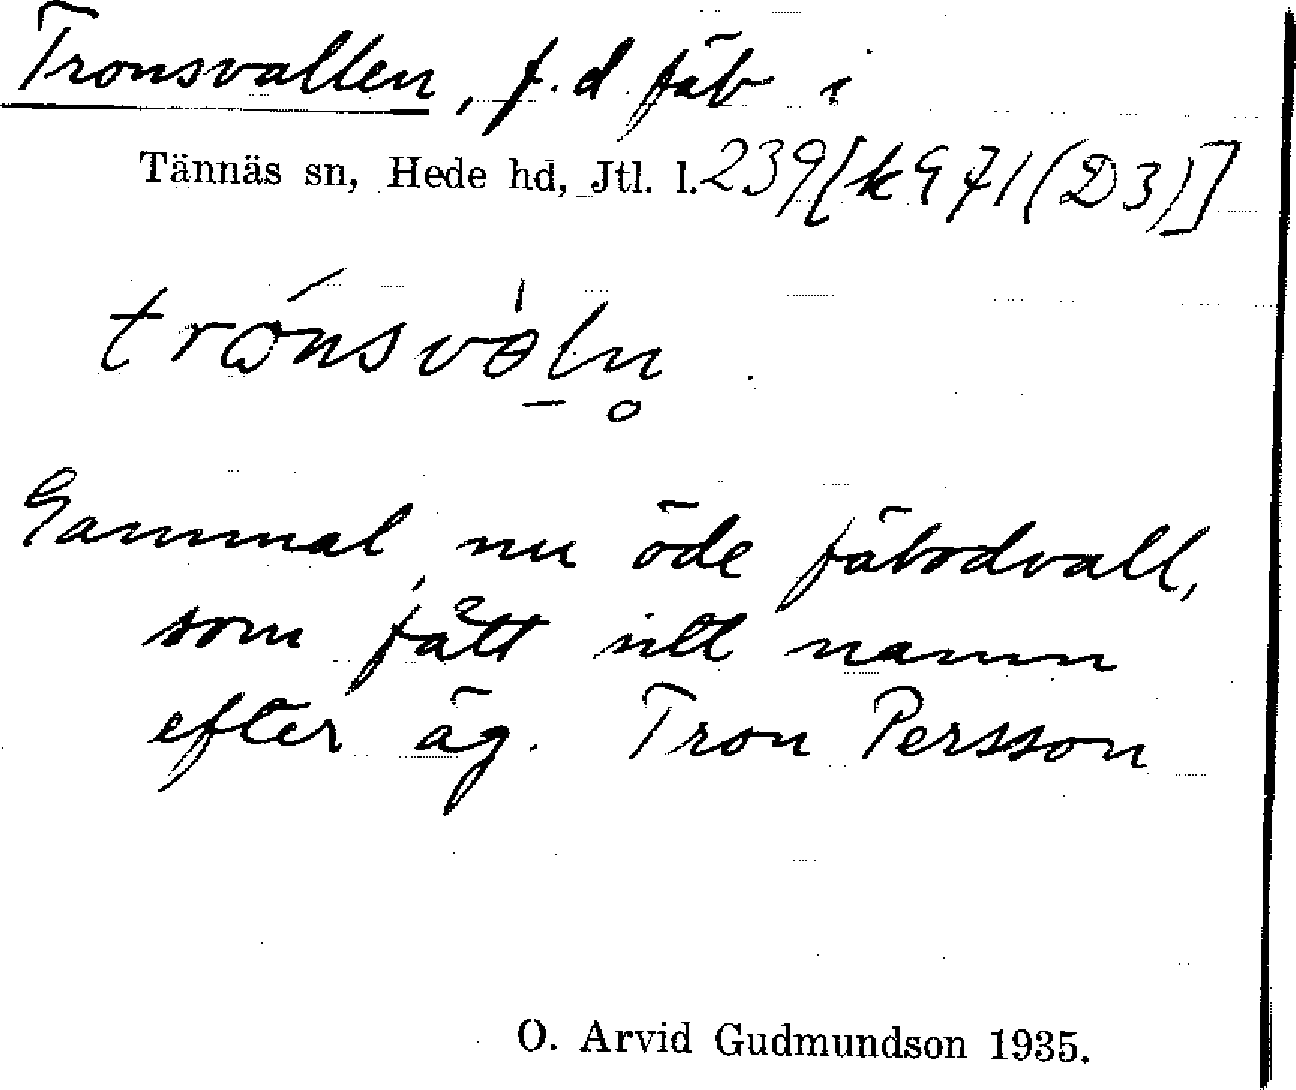 Tronsvallen, f.d. fäb i
Tännäs sn, Hede hd, Jtl. l. 239[k971(D3)]
Gammal, nu öde fäbodvall,
som fått sitt namn
efter äg. Tron Persson
O. Arvid Gudmundson 1935.